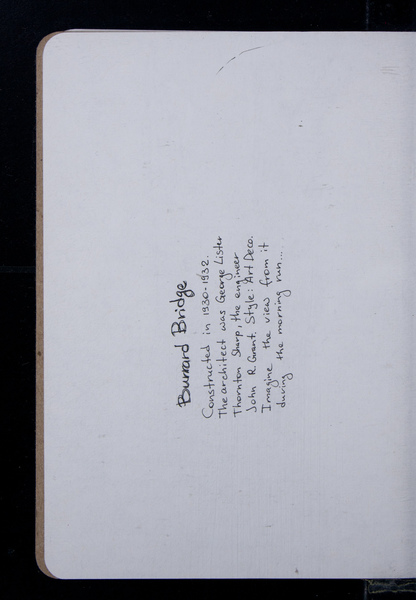 Burrard Bridge
Constructed in 1930-1932.
The architect was George Lister
Thornton Sharp, the engineer
John R. Grant. Style: Art Deco.
Imagine the view from it
during the morning run...